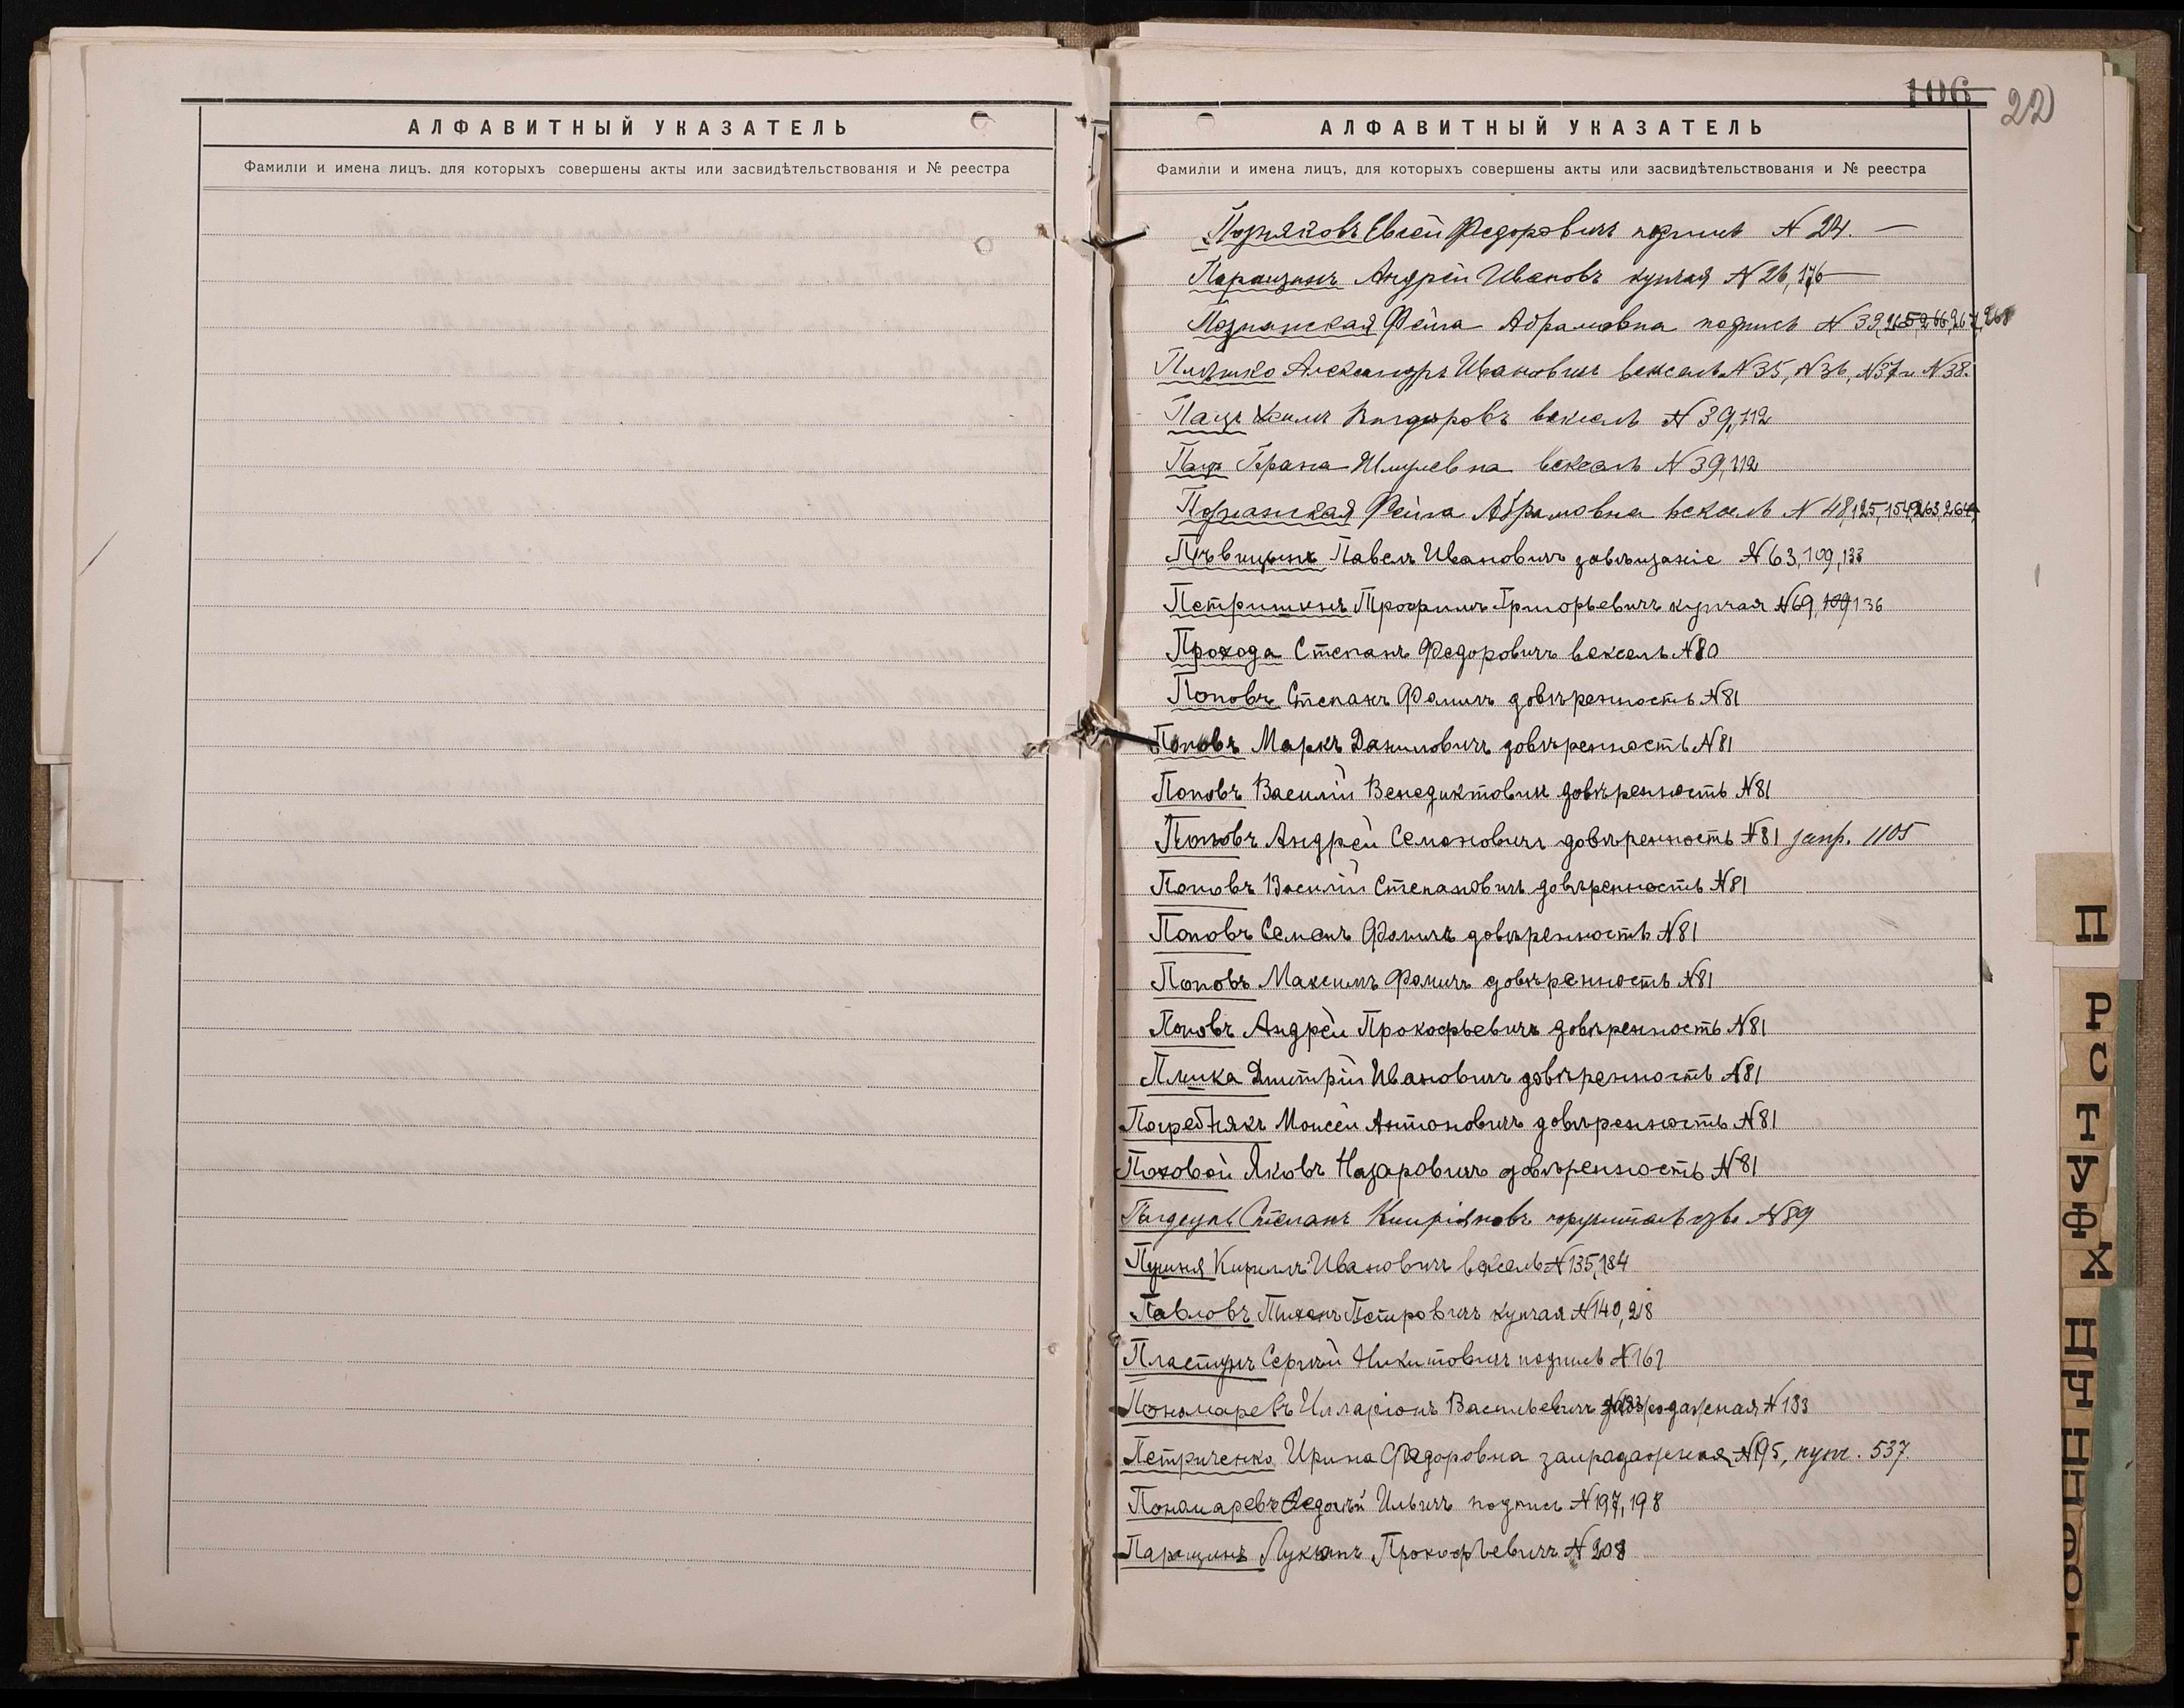 АЛФАВИТНЫЙ УКАЗАТЕЛЬ
Фамиліи и имена лицъ, для которыхъ совершены акты или засвидѣтельствованія и № реестра
106
22
АЛФАВИТНЫЙ УКАЗАТЕЛЬ
Фамиліи и имена лицъ, для которыхъ совершены акты или засвидѣтельствованія и № реестра
Позняковъ Евсей Федоровичъ подпись N 24. —
Паращинъ Андрей Ивановъ купчая N 26, 176 —
Познанская Фейга Абрамовна подпись N 33, 265, 266, 267, 268
Александръ Ивановичъ вексель N 35, N 36, N 37 и N 38.
Пацъ вексель N 39, 112
Пацъ вексель N 39, 112
Познанская Фейга Абрамовна вексель N 48, 125, 154, 263, 264
Пѣвицынъ Павелъ Ивановичъ завѣщаніе N 63, 109, 133
Петришинъ Трофимъ Григорьевичъ купчая N 69, 109 136
Прохода Степанъ Федоровичъ вексель N 80
Поповъ Степанъ Фомичъ довѣренность N 81
Поповъ Маркъ Даниловичъ довѣренность N 81
Поповъ Василій Венедиктовичъ довѣренность N 81
Поповъ Андрей Семеновичъ довѣренность N 81 запр. 1105
Поповъ Василій Степановичъ довѣренность N 81
Поповъ Семенъ Фомичъ довѣренность N 81
Поповъ Максимъ Фомичъ довѣренность N 81
Поповъ Андрей Прокофьевичъ довѣренность N 81
Плишка Дмитрій Ивановичъ довѣренность N 81
Погребнякъ Моисей Антоновичъ довѣренность N 81
Полковой Яковъ Назаровичъ довѣренность N 81
Степанъ Кипріяновъ N 89
Пушня Кириллъ Ивановичъ вексель N 135, 184
Павловъ Петровичъ купчая N 140, 218
Пластунъ Сергѣй Никитовичъ подпись N 161
Пономаревъ Илларіонъ Васильевичъ запродажная N 183
Петриченко Ирина Федоровна запродажная N 195, купч. 537.
Пономаревъ Ильичъ подпись N 197, 198
Паращинъ Лукьянъ Прокофьевичъ N 208
П
Р
С
Т
У
Ф
Х
Ц
Ч